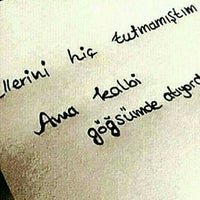 llerini hiç tutmamıştım
Ama kalbi
göğsümde atıyord